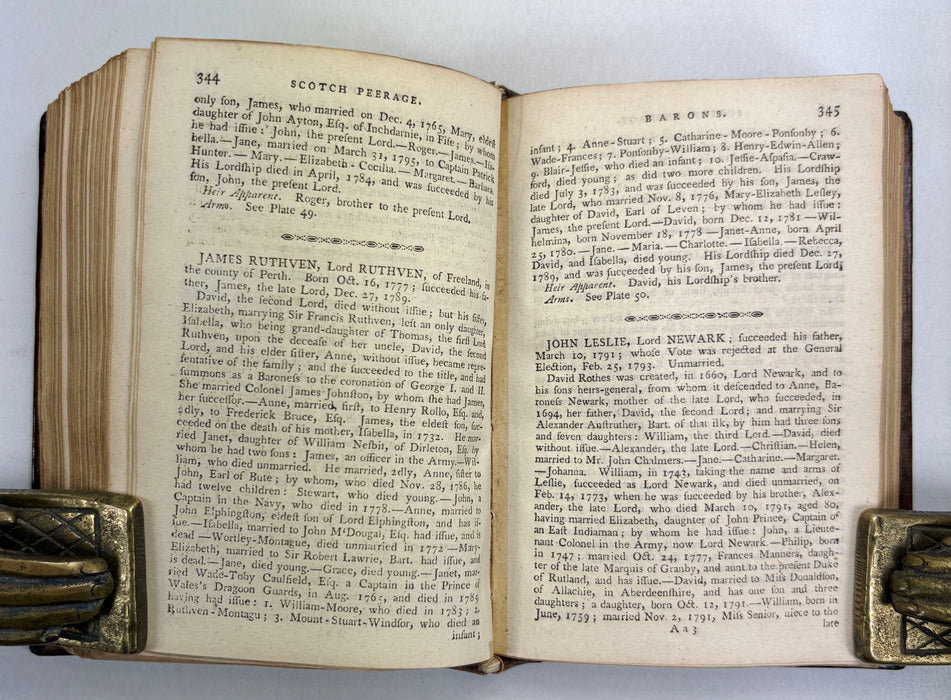 344
SCOTCH PEERAGE.
only ſon, James, who married on Dec. 4, 1765, Mary, eldeſt
daughter of John Ayton, Eſq. of Inchdarnie, in Fife; by whom
he had iſſue: John, the present Lord.—Roger.—James.—Iſa-
bella.—Jane, married on March 31, 1795, to Captain Patrick
Hunter.—Mary.—Elizabeth-Cecilia.—Margaret.—Barbara.
His Lordſhip died in April, 1784, and was succeeded by his
ſon, John, the preſent Lord.
Heir Apparent. Roger, brother to the preſent Lord.
Arms. See Plate 49.
JAMES RUTHVEN, Lord RUTHVEN, of Freeland, in
the county of Perth. Born Oct. 16, 1777; ſucceeded his fa-
ther, James, the late Lord, Dec. 27, 1789.
David, the ſecond Lord, died without iſſue; but his ſiſter,
Elizabeth, marrying Sir Francis Ruthven, left an only daughter,
Iſabella, who being grand-daughter of Thomas, the firſt Lord
Ruthven, upon the deceaſe of her uncle, David, the ſecond
Lord, and his elder ſiſter, Anne, without iſſue, became repre-
ſentative of the family; and ſhe ſucceeded to the title, and had
ſummons as a Baroneſs to the coronation of George I. and II.
She married Colonel James Johnſton, by whom ſhe had James,
her ſucceſſor.—Anne, married, firſt, to Henry Rollo, Eſq. and,
2dly, to Frederick Bruce, Eſq. James, the eldeſt ſon, ſuc-
ceeded on the death of his mother, Iſabella, in 1732. He mar-
ried Janet, daughter of William Neſbit, of Dirleton, Eſq. by
whom he had two ſons: James, an officer in the Army.—Wil-
liam, who died unmarried. He married, 2dly, Anne, ſiſter to
John, Earl of Bute; by whom, who died Nov. 28, 1786, he
had twelve children: Stewart, who died young.—John, a
Captain in the Navy, who died in 1778.—Anne, married to
John Elphingſton, eldeſt ſon of Lord Elphingſton, and has iſ-
ſue.—Iſabella, married to John M'Dougal, Eſq. had iſſue, and is
dead.—Wortley-Montague, died unmarried in 1772.—Mary-
Elizabeth, married to Sir Robert Lawrie, Bart. had iſſue, and
is dead.—Jane, died young.—Grace, died young.—Janet, mar-
ried Wade-Toby Caulfield, Eſq. a Captain in the Prince of
Wales's Dragoon Guards, in Aug. 1765, and died in 1789
having had iſſue: 1. William-Moore, who died in 1783; 2.
Ruthven-Montagu; 3. Mount-Stuart-Windſor, who died an
infant;
BARONS.
345
infant; 4. Anne-Stuart; 5. Catharine-Moore-Ponſonby; 6.
Wade-Frances; 7. Ponſonby-William; 8. Henry-Edwin-Allen;
9. Blair-Jeſſie, who died an infant; 10. Jeſſie-Aſpaſia.—Craw-
ford, died young; as did two more children. His Lordſhip
died July 3, 1783, and was ſucceeded by his ſon, James, the
late Lord, who married Nov. 8, 1776, Mary-Elizabeth Leſley,
daughter of David, Earl of Leven; by whom he had iſſue:
James, the preſent Lord.—David, born Dec. 12, 1781.—Wil-
helmina, born November 18, 1778.—Janet-Anne, born April
25, 1780.—Jane.—Maria.—Charlotte.—Iſabella.—Rebecca,
David, and Iſabella, died young. His Lordſhip died Dec. 27,
1789, and was ſucceeded by his ſon, James, the preſent Lord;
Heir Apparent. David, his Lordſhip's brother.
Arms. See Plate 50.
JOHN LESLIE, Lord NEWARK; ſucceeded his father,
March 10, 1791; whoſe Vote was rejected at the General
Election, Feb. 25, 1793. Unmarried.
David Rothes was created, in 1660, Lord Newark, and to
his ſons heirs-general, from whom it deſcended to Anne, Ba-
roneſs Newark, mother of the late Lord, who ſucceeded, in
1694, her father, David, the ſecond Lord; and marrying Sir
Alexander Anſtruther, Bart. of that ilk, by him had three ſons
and ſeven daughters: William, the third Lord.—David, died
without iſſue.—Alexander, the late Lord.—Chriſtian.—Helen,
married to Mr. John Chalmers.—Jane.—Catharine.—Margaret.
—Johanna. William, in 1743, taking the name and arms of
Leſlie, ſucceeded as Lord Newark, and died unmarried, on
Feb. 14, 1773, when he was ſucceeded by his brother, Alex-
ander, the late Lord, who died March 10, 1791, aged 80,
having married Elizabeth, daughter of John Prince, Captain of
an Eaſt Indiaman; by whom he had iſſue: John, a Lieute-
nant-Colonel in the Army, now Lord Newark.—Philip, born
in 1747; married Oct. 24, 1777, Frances Manners, daugh-
ter of the late Marquis of Granby, and aunt to the preſent Duke
of Rutland, and has iſſue.—David, married to Miſs Donaldſon,
of Allachie, in Aberdeenſhire, and has one ſon and three
daughters; a daughter, born Oct. 12, 1791.—William, born in
June, 1759; married Nov. 2, 1791, Miſs Senior, niece to the
A a 3
late